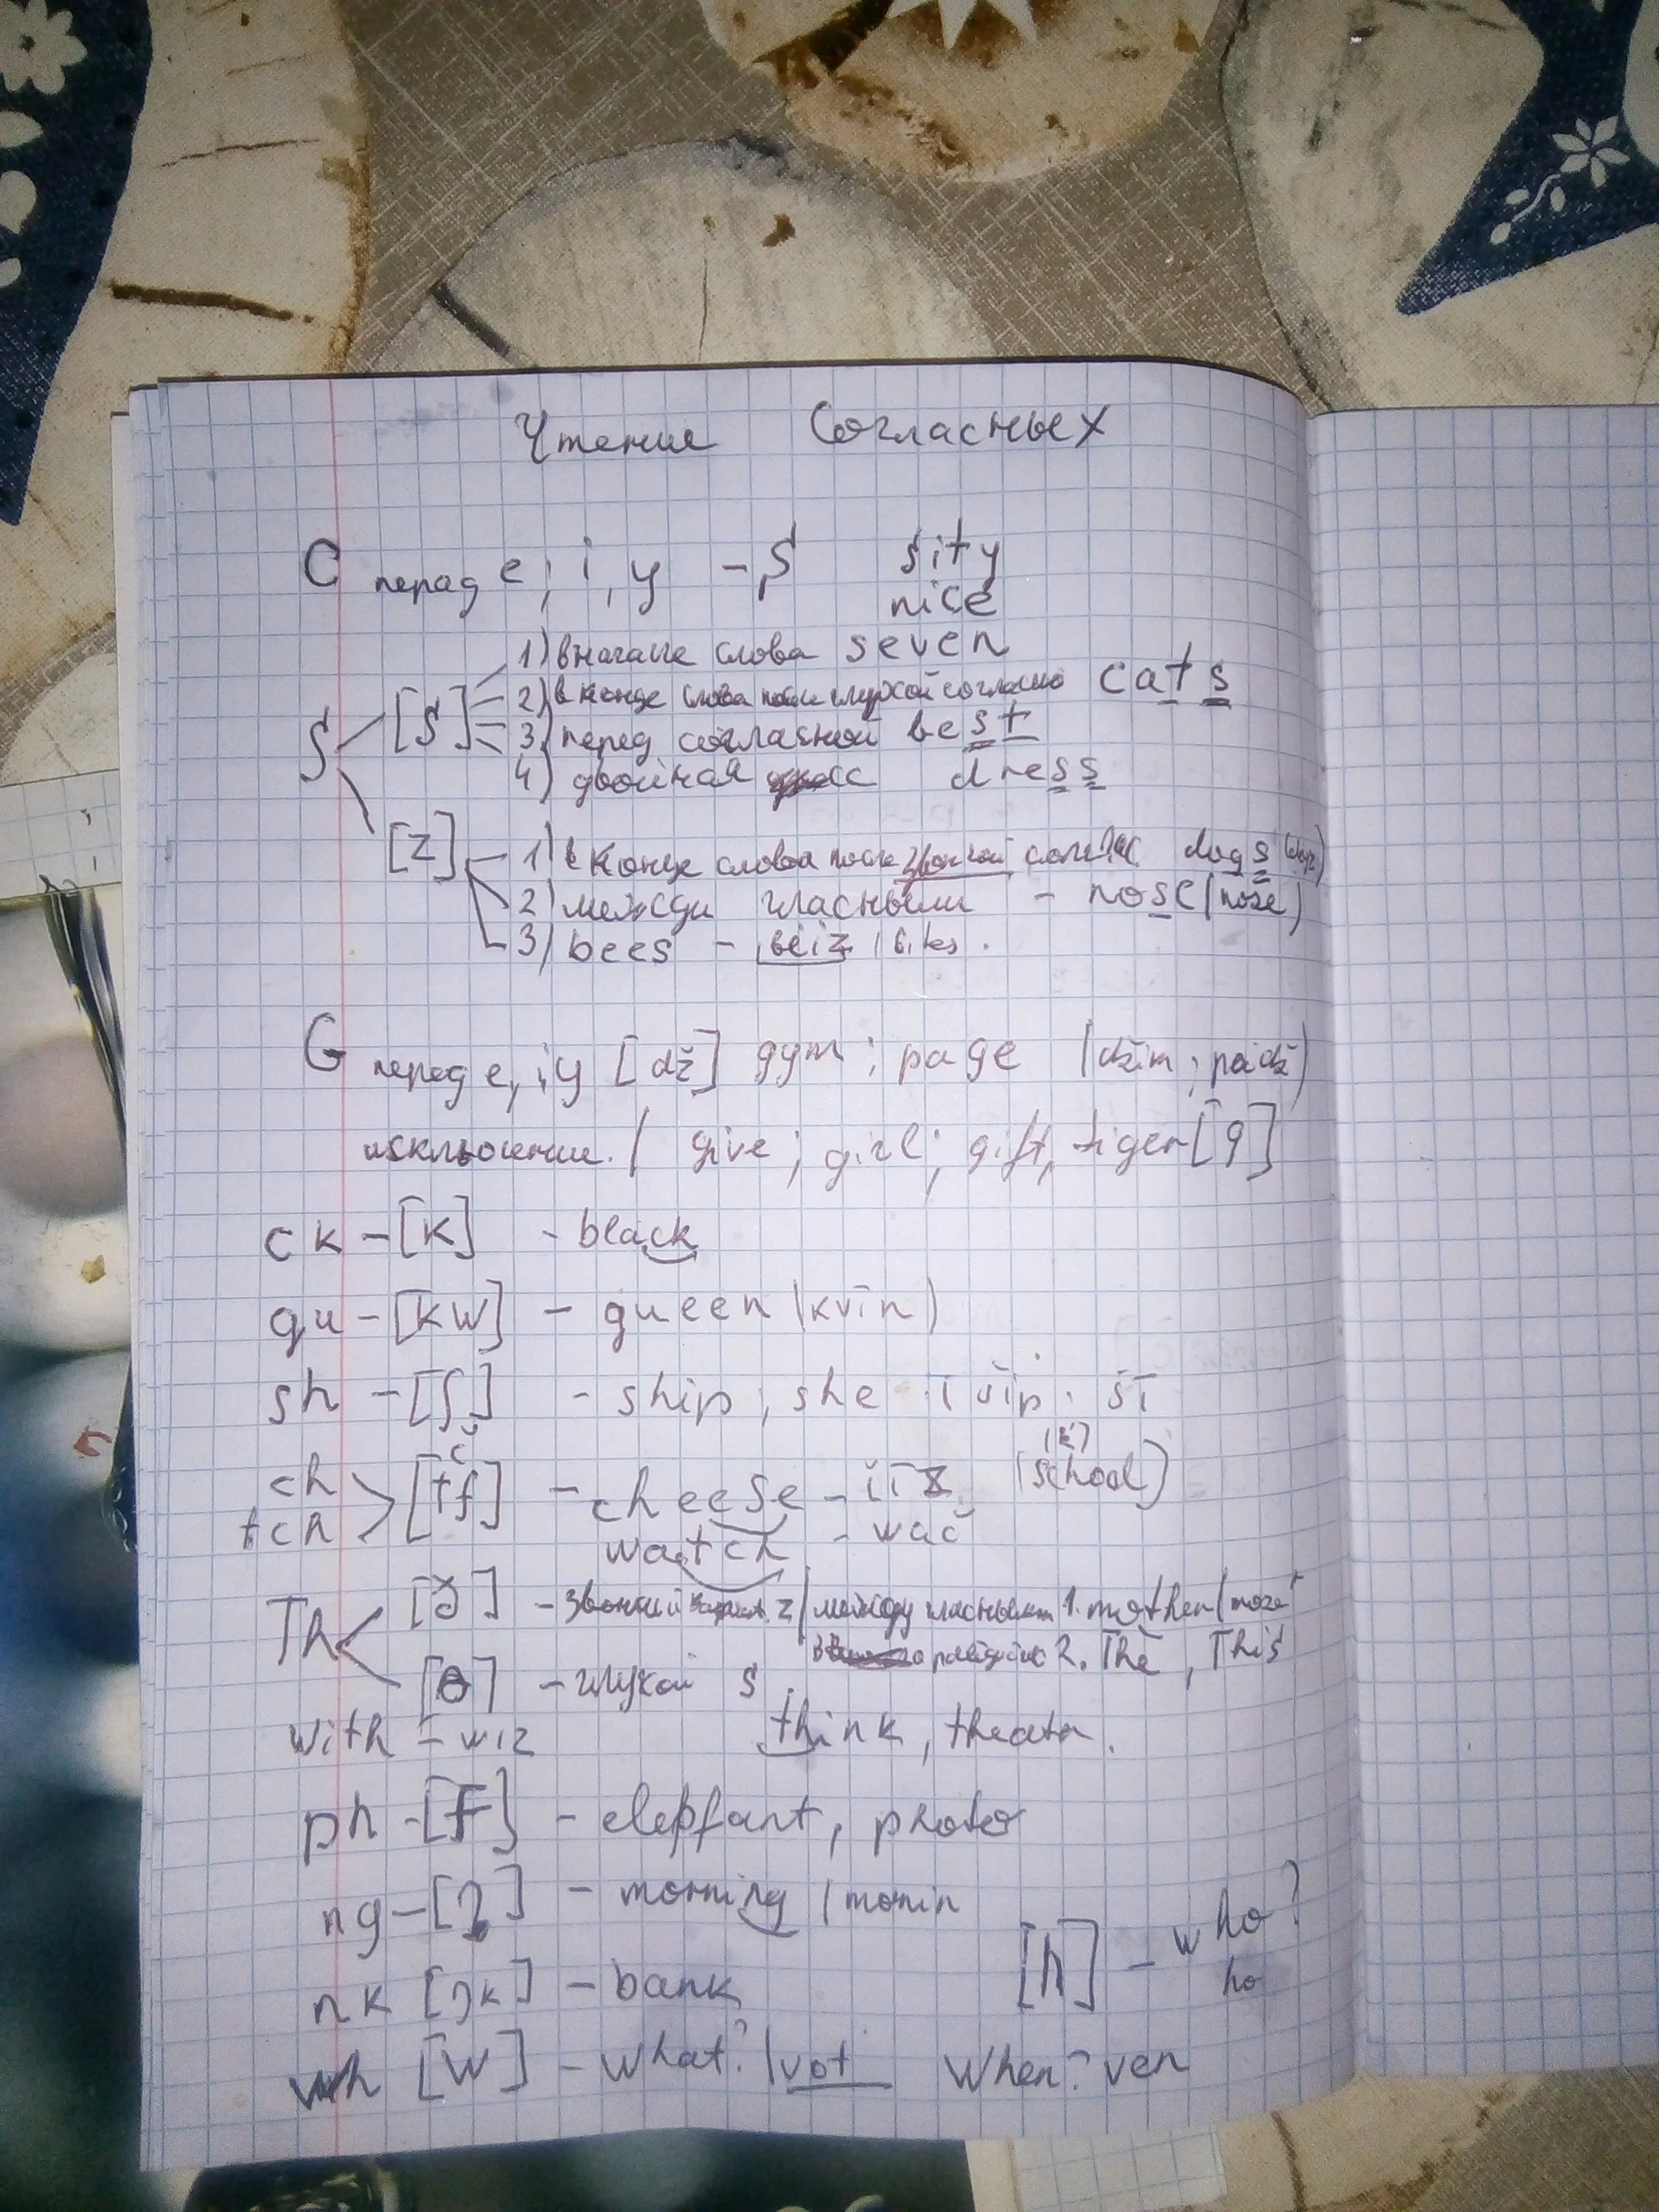 Чтение Согласных
C перед e, i, y - S sity
nice
1) вначале слова seven
2) в конце слова после глухой согласно cats
S [S] 3) перед согласной best
4) двойная сс dress
[z] 1) в конце слова после звонкой соглас dogs
2) между гласными - nose (noze)
3) bees - beiz
G перед e, i, y [dž] gym; page (džim; peidž)
исключение / give; girl; gift, tiger [g]
ck - [k] - black
qu - [kw] - queen (kvīn)
sh - [ʃ] - ship, she šip. šī
č (k)
ch [tʃ] - cheese - (school)
tch watch - wač
Th [ð] - звонкий z / между гласными 1. mother (moze
2. The, This
[θ] - глухой s
with - wiz think, theatr.
ph - [f] - elepfant, photo
ng - [ŋ] - morning / monin
[h] - who?
ho
nk [ŋk] - bank
wh [w] - what? / vot When? ven